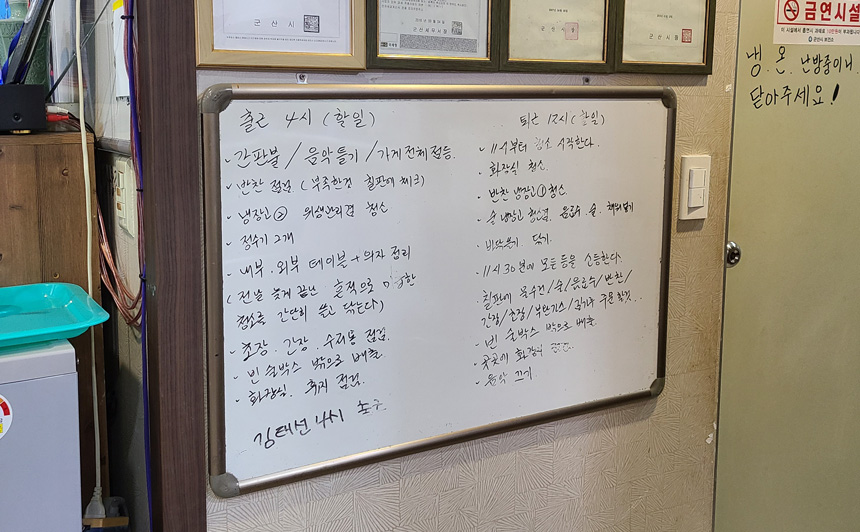 군산시
군산세무서장
군산시장
금연시설
냉.온.난방중이니
닫아주세요!
출근 4시 (할일)
· 간판불 / 음악틀기 / 가게 전체점등.
· 반찬 점검 ( 부족한건 칠판에 체크)
· 냉장고② 위생관리겸 청소
· 정수기 2개
· 내부.외부 테이블+의자 정리
( 전날 늦게 끝난 흔적으로
청소를 간단히 쓸고 닦는다)
· 초장. 간장. 수저통 점검.
· 빈 술박스 밖으로 배출.
· 화장실. 휴지 점검.
김태선 4시 출근.
퇴근 12시 (할일)
· 11시부터 청소 시작한다.
· 화장실 청소.
· 반찬 냉장고① 청소
· 술 냉장고 음료수. 술. 채워넣기
· 닦기.
· 11시 30분에 모든 등을 소등한다.
· 칠판에 물수건/술/음료수/반찬/
간장/초장/부탄가스/ 주문할것..
· 빈 술박스 밖으로 배출.
· 곳곳에 화장지
· 음악 끄기